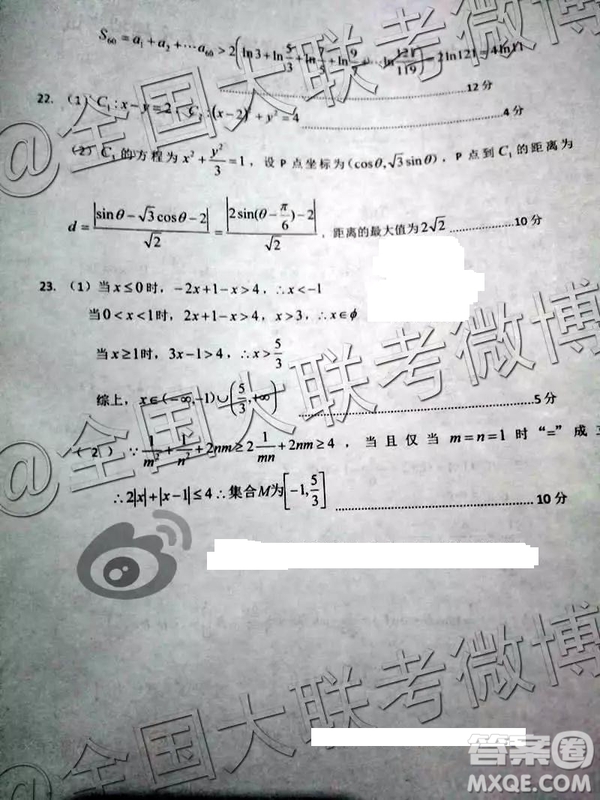 S₆₀ = a₁ + a₂ + ⋯a₆₀ > 2(ln3 + ln5/3 + ln7/5 + ln9/7 + ⋯ ln121/119) = 2ln121 = 4ln11
12 分
22. (1) C₁ : x − y = 2 C₂ : (x−2)² + y² = 4 4 分
(2) C₁ 的方程为 x² + y²/3 = 1 ,设 P 点坐标为 (cosθ, √3 sinθ) , P 点到 C₁ 的距离为
d = |sinθ − √3cosθ − 2|/√2 = |2sin(θ − π/6) − 2|/√2 ,距离的最大值为 2√2 ..........10 分
23. (1) 当 x ≤ 0 时, −2x + 1 − x > 4 , ∴ x < −1
当 0 < x < 1 时, 2x + 1 − x > 4 , x > 3 , ∴ x ∈ ϕ
当 x ≥ 1 时, 3x − 1 > 4 , ∴ x > 5/3
综上, x ∈ (−∞, −1) ∪ (5/3, +∞) 5 分
(2) ∵ 1/m² + 1/n² + 2nm ≥ 2 1/mn + 2nm ≥ 4 , 当且仅当 m = n = 1 时 “=” 成立
∴ 2|x| + |x−1| ≤ 4 ∴ 集合 M 为 [−1, 5/3] 10 分
@全国大联考微博
答案圈
MXQE.COM